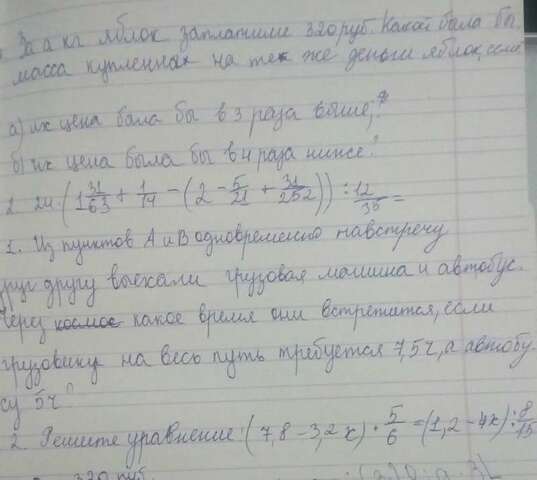 За а кг яблок заплатили 320 руб. Какой была бы
масса купленных на те же деньги яблок, если
а) их цена была бы в 3 раза выше;?
б) их цена была бы в 4 раза ниже?
2. (1 31/63 + 1/14 - (2 - 5/21 + 31/252)) : 12/35 =
1. Из пунктов А и В одновременно навстречу
друг другу выехали грузовая машина и автобус.
Через какое время они встретятся, если
грузовику на весь путь требуется 7,5ч, а автобу
су 5ч?
2 Решите уравнение: (7,8 - 3,2х) · 5/6 = (1,2 - 4х) : 8/15
320 руб.